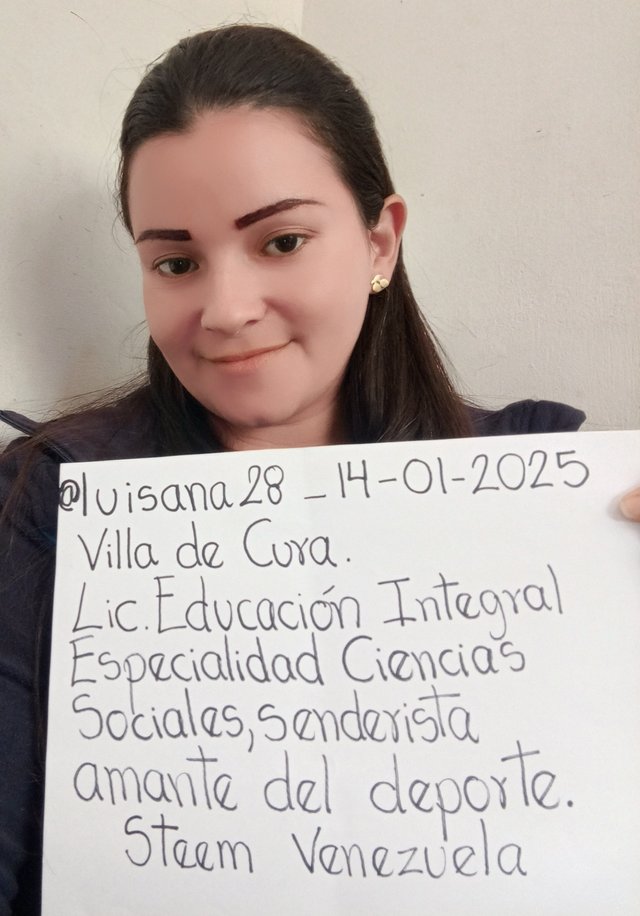 @luisana28 _ 14-01-2025
Villa de Cura.
Lic. Educación Integral
Especialidad Ciencias
Sociales, senderista
amante del deporte.
Steem Venezuela